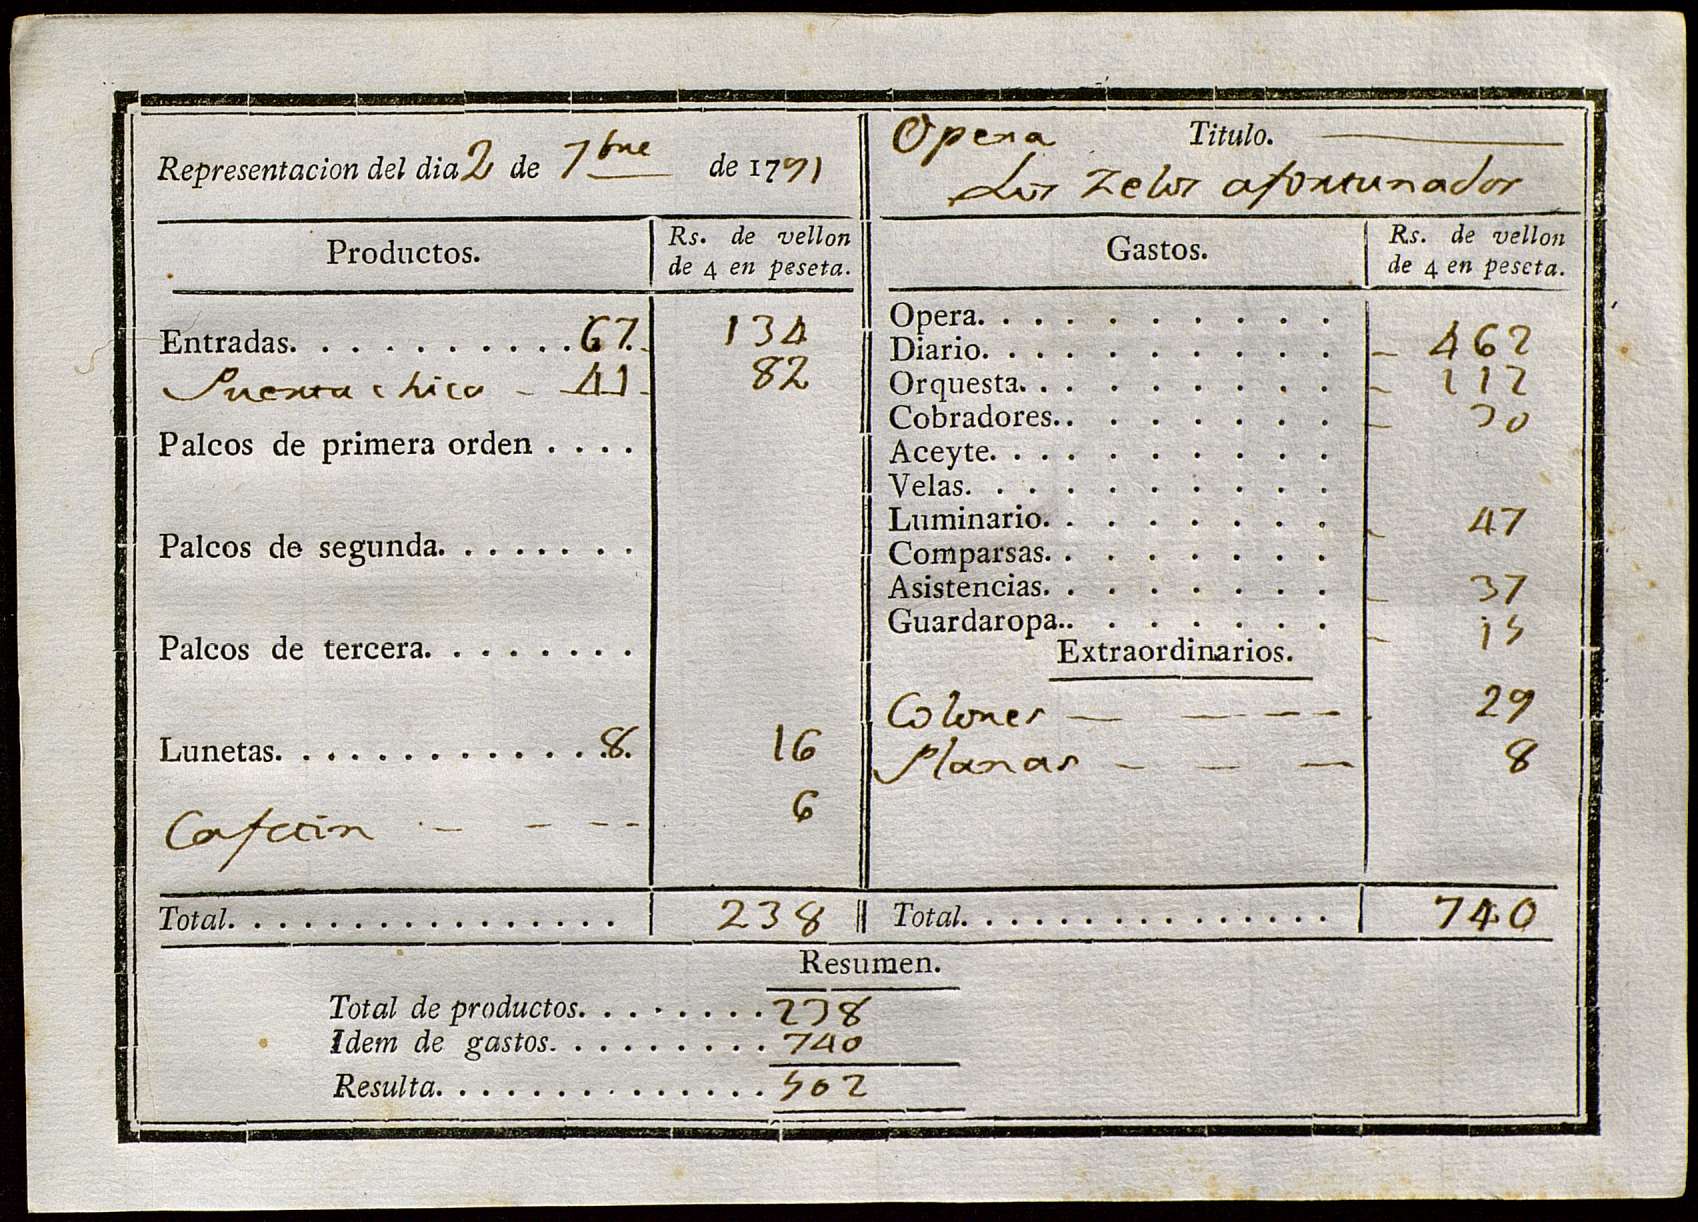 Representacion del dia 2 de 7bre de 1791
Opera Titulo.
Los zelos afortunados
Productos. Rs. de vellon de 4 en peseta.
Gastos. Rs. de vellon de 4 en peseta.
Entradas. . . . . . . . . . . 67. 134
Puerta chica - 41 - 82
Palcos de primera orden . . . .
Palcos de segunda. . . . . . . .
Palcos de tercera. . . . . . . . .
Lunetas. . . . . . . . . . . . .8. 16
6
Total. . . . . . . . . . . . . . . . 238
Opera. . . . . . . . . .
Diario. . . . . . . . . . - 462
Orquesta. . . . . . . . . - 112
Cobradores. . . . . . . . - 30
Aceyte. . . . . . . . . .
Velas. . . . . . . . . .
Luminario. . . . . . . . - 47
Comparsas. . . . . . . .
Asistencias. . . . . . . . - 37
Guardaropa. . . . . . . . - 15
Extraordinarios.
Colones — — — — 29
Planas — — — 8
Total. . . . . . . . . . . . . . . 740
Resumen.
Total de productos. . . . . . . . 238
Idem de gastos. . . . . . . . . . 740
Resulta. . . . . . . . . . . . . . 502